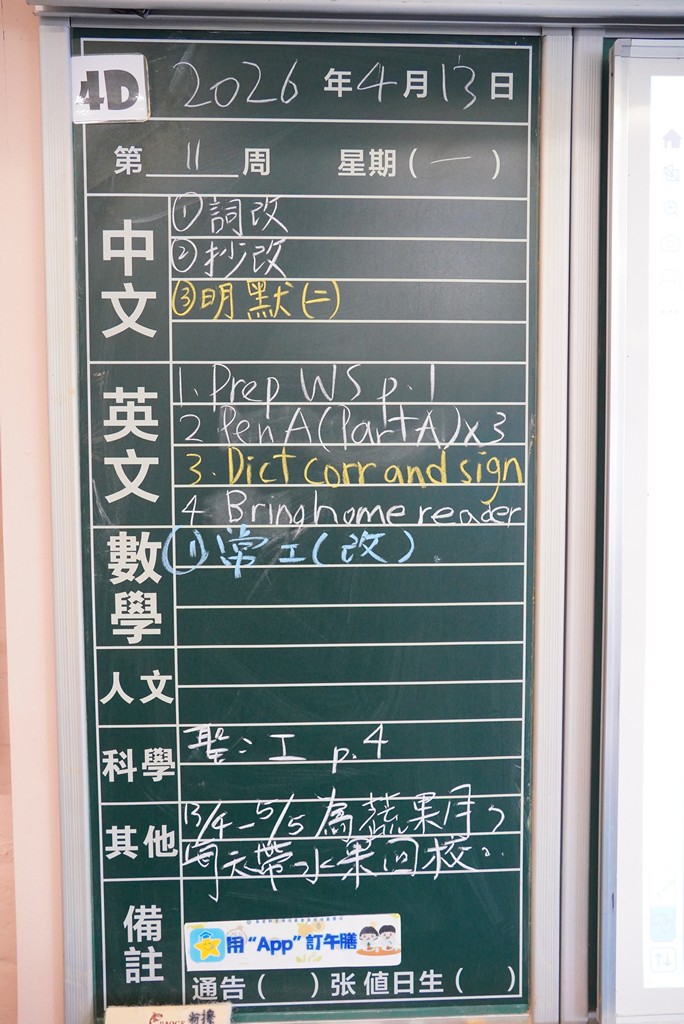 4D 2026 年 4 月 13 日
第 11 周 星期 ( 一 )
中文
① 詞改
② 抄改
③ 明默 (二)
英文
1. Prep WS p.1
2 Pen A (Part A) x3
3. Dict corr and sign
4 Bring home reader
數學
(1) 常工 (改)
人文
科學
聖：工 p.4
其他
13/4 - 5/5 為蔬果月，
每天帶水果回校。
備註
用 “App” 訂午膳
通告 ( ) 张 值日生 ( )